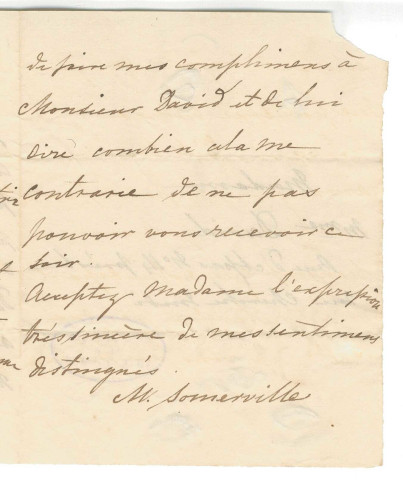 de faire mes complimens à
Monsieur David et de lui
dire combien cela me
contrarie de ne pas
pouvoir vous recevoir ce
soir.
Acceptez Madame l'expression
très sincère de mes sentimens
distingués.
M. Somerville